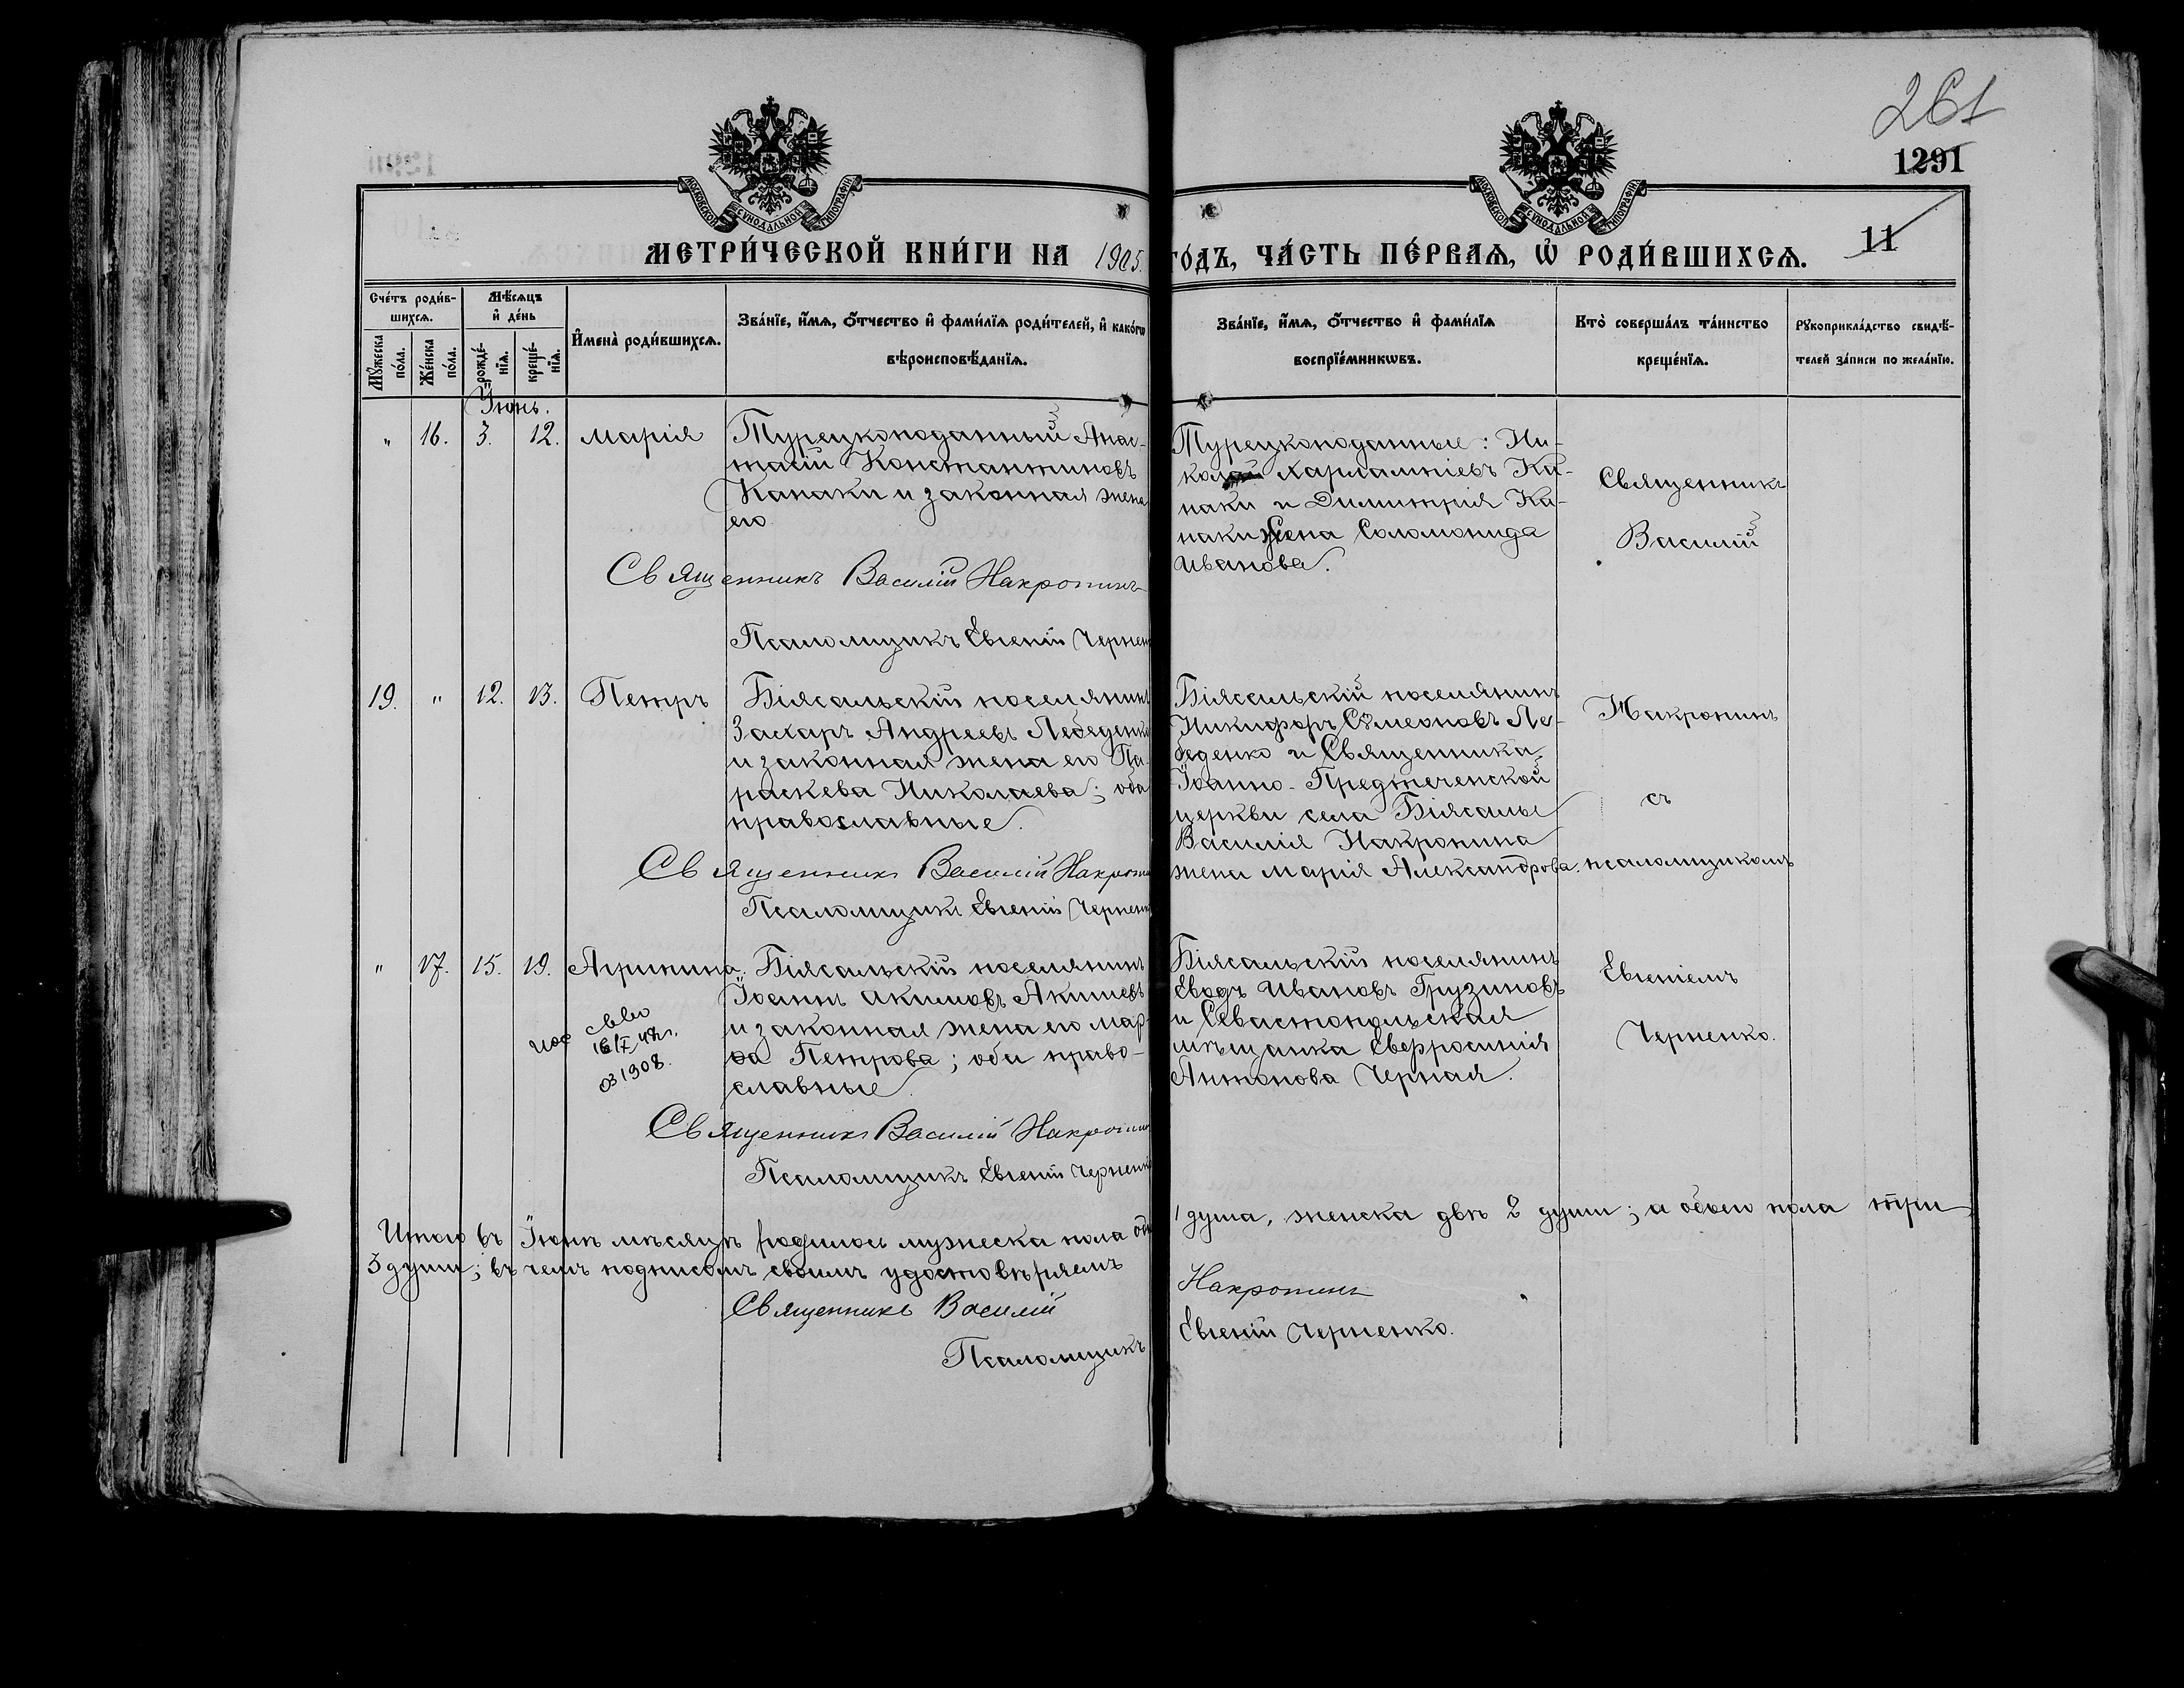 261
1291
11
МОСКОВСКОЙ СѴНОДАЛЬНОЙ ТИПОГРАФІИ
МОСКОВСКОЙ СѴНОДАЛЬНОЙ ТИПОГРАФІИ
МЕТРИ́ЧЕСКОЙ КНИ́ГИ НА 1905. ГО́ДЪ, ЧА́СТЬ ПЕ́РВАѦ, Ѡ РОДИ́ВШИХСѦ.
Сче́тъ роди́в-
шихсѧ.
Мꙋ́жеска по́ла.
Же́нска по́ла.
Мѣ́сѧцъ
и де́нь
рожде́-
нїѧ.
креще́-
нїѧ.
Имена̀ роди́вшихсѧ.
Зва́нїе, и́мѧ, ѻ́тчество и фами́лїѧ роди́телей, и како́гѡ
вѣроисповѣ́данїѧ.
Зва́нїе, и́мѧ, ѻ́тчество и фами́лїѧ
воспрїе́мникѡвъ.
Кто̀ соверша́лъ та́инство
креще́нїѧ.
Рꙋкоприкла́дство свидѣ́-
телей за́писи по жела́нїю.
Іюнь.
" 16. 3. 12. Марія
Турецкоподанный Анас-
тасій Константиновъ
Канаки и законная жена
его
Священникъ Василій Накропинъ
Псаломщикъ Евгеній Чернен
Турецкоподанные: Ни-
колай Харлампіевъ Ка-
наки и Димитрія Ка-
наки жена Соломонида
Иванова.
Священникъ
Василій
19. " 12. 13. Петръ
Біясальскій поселянинъ
Захаръ Андреевъ Лебеденко
и законная жена его Па-
раскева Николаева; оба
православные.
Священникъ Василій Накропи
Псаломщикъ Евгеній Черненк
Біясальскій поселянинъ
Никифоръ Сѵмеоновъ Ле-
беденко и Священника
Іоанно-Предтеченской
церкви села Біясалы
Василія Накропина
жена Марія Александрова.
Накропинъ
съ
псаломщикомъ
" 17. 15. 19. Агрипина.
Біясальскій поселянинъ
Іоаннъ Акимовъ Акишевъ
и законная жена его Мар-
фа Петрова; оба право-
славные.
031908.
Священникъ Василій Накропин
Псаломщикъ Евгеній Черненк
Біясальскій поселянинъ
Еводъ Ивановъ Грузиновъ
и Севастопольская
мѣщанка Евфросинія
Антонова Черная.
Евгеніемъ
Черненко.
Итого въ Іюнѣ мѣсяцѣ родилось мужеска пола од 1 душа, женска двѣ 2 души; а обоего пола три
3 души; въ чемъ подписомъ своимъ удостовѣряемъ
Священникъ Василій Накропинъ
Псаломщикъ Евгеній Черненко.